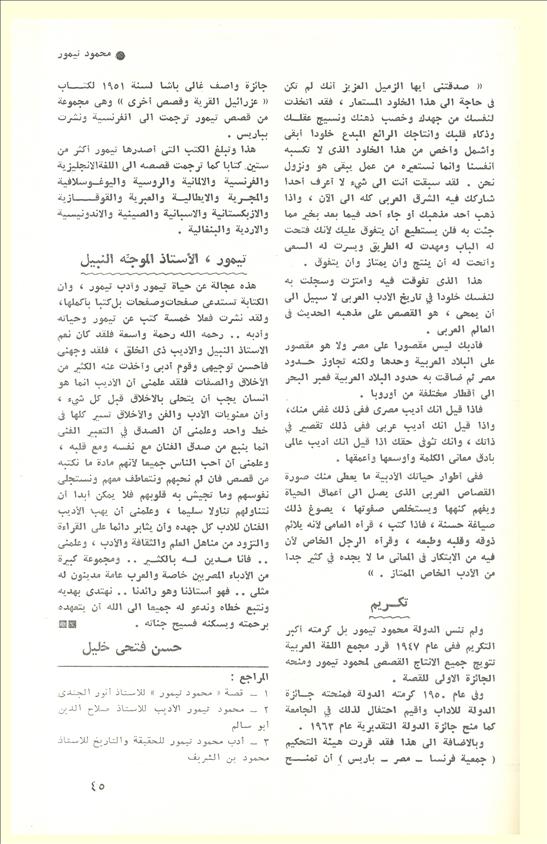 محمود تيمور
« صدقتنى أيها الزميل العزيز أنك لم تكن
فى حاجة الى هذا الخلود المستعار ، فقد اتخذت
لنفسك من جهدك وخصب ذهنك ونسيج عقلك
وذكاء قلبك وانتاجك الرائع المبدع خلودا أبقى
وأشمل وأخص من هذا الخلود الذى لا تكسبه
أنفسنا وانما نستعيره من عمل يبقى هو ونزول
نحن . لقد سبقت أنت الى شىء لا أعرف أحدا
شاركك فيه الشرق العربى كله الى الآن ، واذا
ذهب أحد مذهبك أو جاء أحد فيما بعد بخير مما
جئت به فلن يستطيع أن يتفوق عليك لأنك فتحت
له الباب ومهدت له الطريق ويسرت له السعى
وأتحت له أن ينتج وأن يمتاز وأن يتفوق .
هذا الذى تفوقت فيه وامتزت وسجلت به
لنفسك خلودا فى تاريخ الأدب العربى لا سبيل الى
أن يمحى ، هو القصص على مذهبه الحديث فى
العالم العربى .
فأدبك ليس مقصورا على مصر ولا هو مقصور
على البلاد العربية وحدها ولكنه تجاوز حدود
مصر ثم ضاقت به حدود البلاد العربية فعبر البحر
الى أقطار مختلفة من أوروبا .
فاذا قيل انك أديب مصرى ففى ذلك غض منك،
واذا قيل انك أديب عربى ففى ذلك تقصير فى
ذاتك ، وانك توفى حقك اذا قيل انك أديب عالمى
بأدق معانى الكلمة وأوسعها وأعمقها .
ففى أطوار حياتك الأدبية ما يعطى منك صورة
القصاص العربى الذى يصل الى أعماق الحياة
ويفهم كنهها ويستخلص صفوتها ، يصوغ ذلك
صياغة حسنة ، فاذا كتب ، قرأه العامى لأنه يلائم
ذوقه وقلبه وطبعه ، وقرأه الرجل الخاص لأن
فيه من الابتكار فى المعانى ما لا يجده فى كثير جدا
من الأدب الخاص الممتاز . »
تكريم
ولم تنس الدولة محمود تيمور بل كرمته أكبر
التكريم ففى عام ١٩٤٧ قرر مجمع اللغة العربية
تتويج جميع الانتاج القصصى لمحمود تيمور ومنحه
الجائزة الأولى للقصة .
وفى عام ١٩٥٠ كرمته الدولة فمنحته جائزة
الدولة للآداب وأقيم احتفال لذلك فى الجامعة
كما منح جائزة الدولة التقديرية عام ١٩٦٣ .
وبالاضافة الى هذا فقد قررت هيئة التحكيم
( جمعية فرنسا ــ مصر ــ باريس ) أن تمنح
جائزة واصف غالى باشا لسنة ١٩٥١ لكتاب
« عزرائيل القرية وقصص أخرى » وهى مجموعة
من قصص تيمور ترجمت الى الفرنسية ونشرت
بباريس .
هذا وتبلغ الكتب التى أصدرها تيمور أكثر من
ستين كتابا كما ترجمت قصصه الى اللغة الانجليزية
والفرنسية والألمانية والروسية واليوغوسلافية
والمجرية والايطالية والعبرية والقوقازية
والأزبكستانية والأسبانية والصينية والأندونيسية
والأردية والبنغالية .
تيمور ، الأستاذ الموجّه النبيل
هذه عجالة عن حياة تيمور وأدب تيمور ، وان
الكتابة تستدعى صفحات وصفحات بل كتبا بأكملها،
ولقد نشرت فعلا خمسة كتب عن تيمور وحياته
وأدبه .. رحمه الله رحمة واسعة فلقد كان نعم
الأستاذ النبيل والأديب ذى الخلق ، فلقد وجهنى
فأحسن توجيهى وقوم أدبى وأخذت عنه الكثير من
الأخلاق والصفات فلقد علمنى أن الأديب انما هو
انسان يجب أن يتحلى بالأخلاق قبل كل شىء ،
وأن معنويات الأدب والفن والأخلاق تسير كلها فى
خط واحد وعلمنى أن الصدق فى التعبير الفنى
انما ينبع من صدق الفنان مع نفسه ومع قلبه ،
وعلمنى أن أحب الناس جميعا لأنهم مادة ما نكتبه
من قصص فان لم نحبهم ونتعاطف معهم ونستجلى
نفوسهم وما تجيش به قلوبهم فلا يمكن أبدا أن
نتناولهم تناولا سليما ، وعلمنى أن يهب الأديب
الفنان للأدب كل جهده وأن يثابر دائما على القراءة
والتزود من مناهل العلم والثقافة والأدب ، وعلمنى
.. فأنا مدين له بالكثير .. ومجموعة كبيرة
من الأدباء المصريين خاصة والعرب عامة مدينون له
مثلى .. فهو أستاذنا وهو رائدنا .. نهتدى بهديه
ونتبع خطاه وندعو له جميعا الى الله أن يتغمده
برحمته ويسكنه فسيح جناته .
حسن فتحى خليل
المراجع :
١ ــ قصة « محمود تيمور » للأستاذ أنور الجندى
٢ ــ محمود تيمور الأديب للأستاذ صلاح الدين
أبو سالم
٣ ــ أدب محمود تيمور للحقيقة والتاريخ للأستاذ
محمود بن الشريف
٤٥